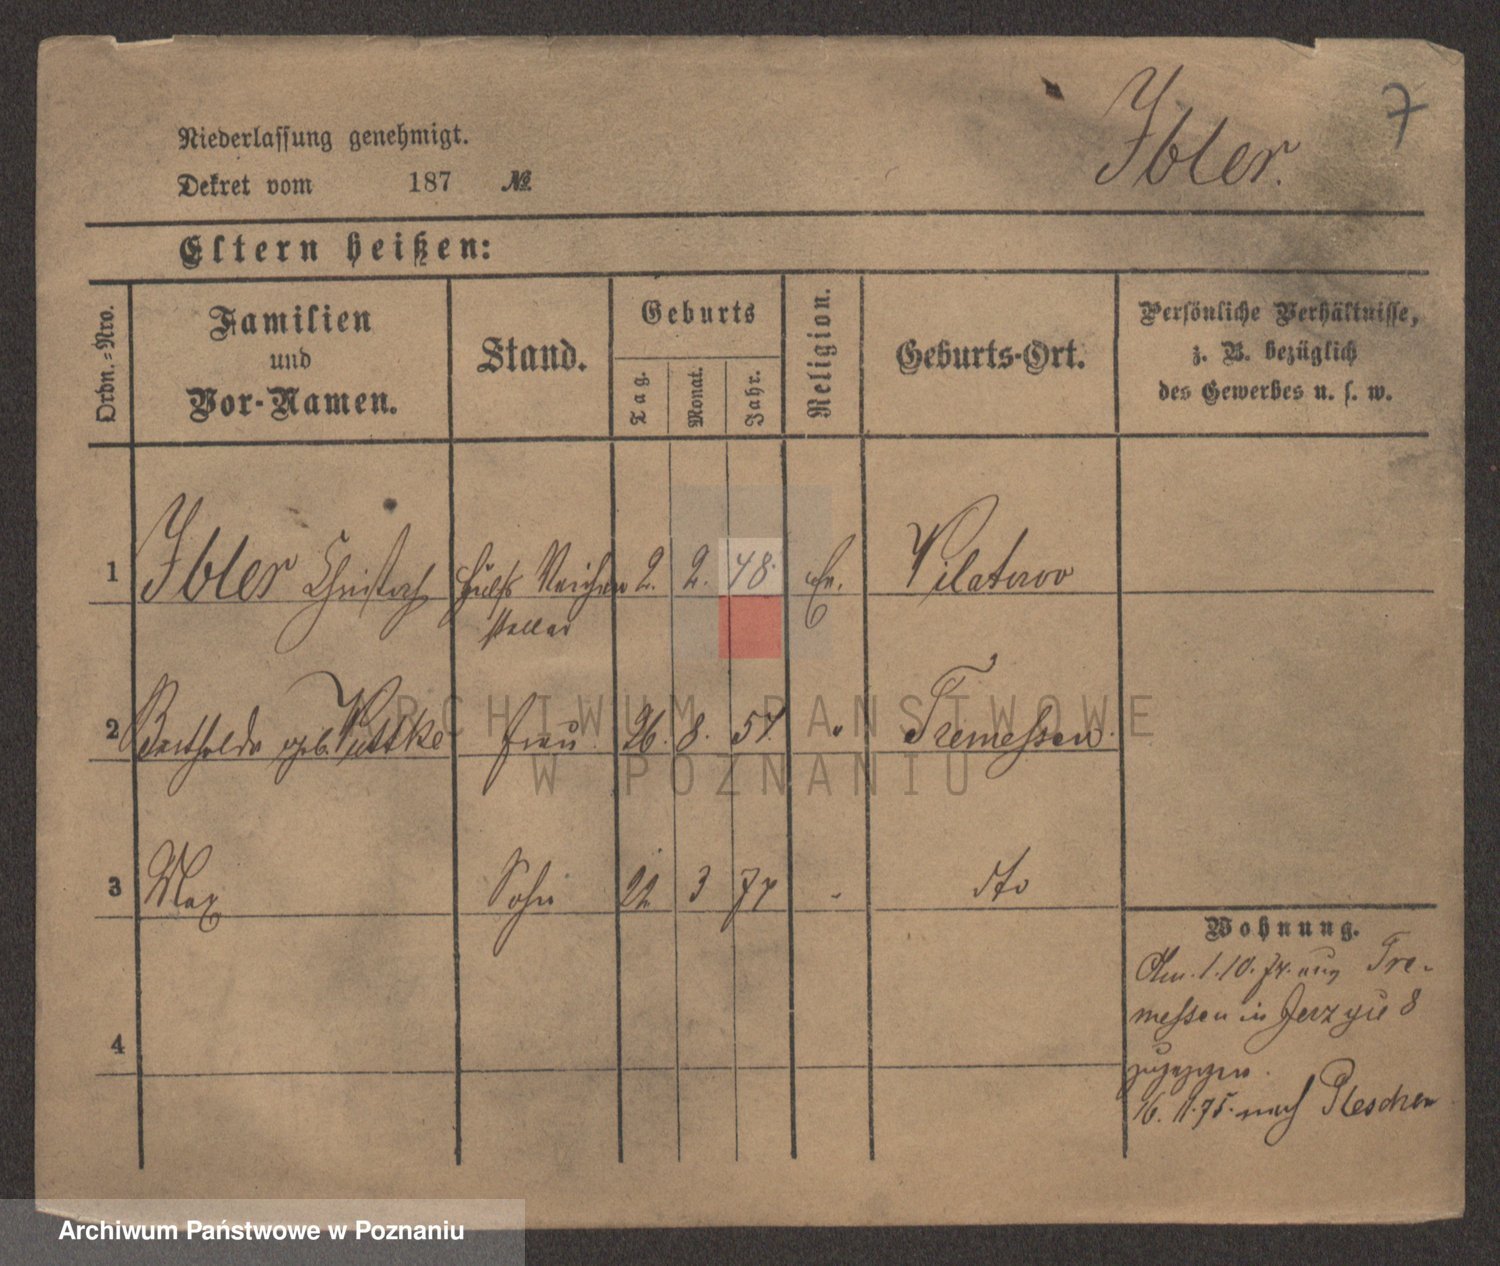 7
Ibler.
Niederlassung genehmigt.
Dekret vom 187 №
Eltern heißen:
Ordn.=Nro.
Familien
und
Vor-Namen.
Stand.
Geburts
Tag.
Monat.
Jahr.
Religion.
Geburts-Ort.
Persönliche Verhältnisse,
z. B. bezüglich
des Gewerbes u. s. w.
1 Ibler Christoph Hülfs Weichen 2. 2. 48. ev. Wilatowo
steller
2 geb. Wuttke Frau 26. 8. 51. " Tremessen.
3 Max Sohn 3 74 " dto
4
Wohnung.
Am. 1. 10. 74. aus Tre-
messen in Jerzyce 8
zugezogen.
16. 11. 75. nach Pleschen
ARCHIWUM PAŃSTWOWE
W POZNANIU
Archiwum Państwowe w Poznaniu